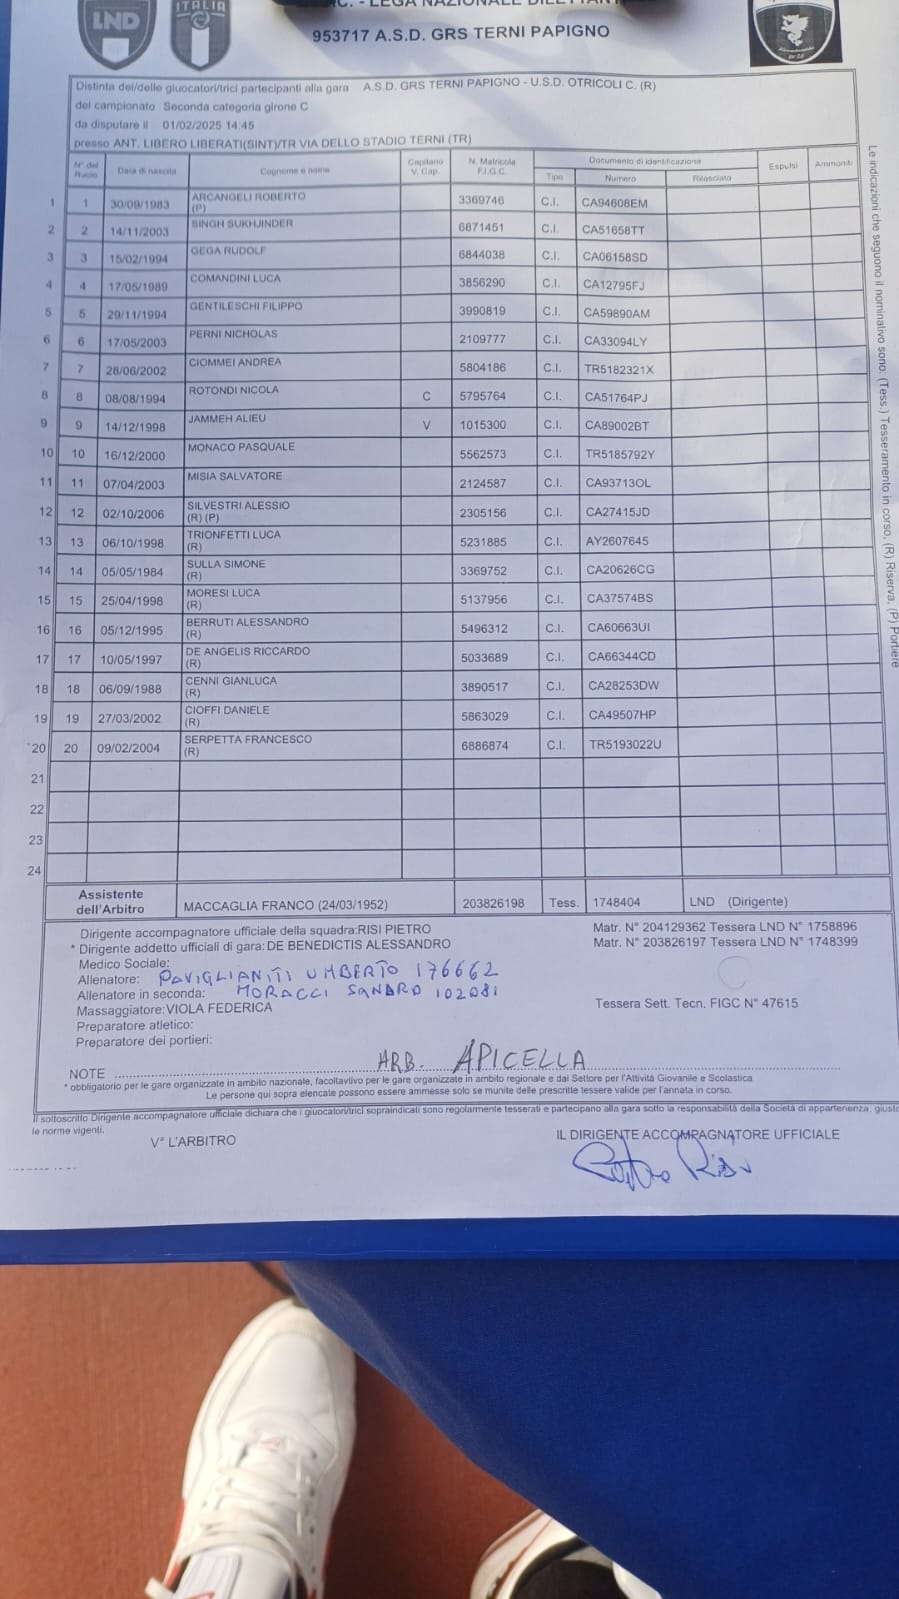 LND
ITALIA
C. - LEGA NAZIONALE DILETTANTI
953717 A.S.D. GRS TERNI PAPIGNO
Distinta dei/delle giuocatori/trici partecipanti alla gara A.S.D. GRS TERNI PAPIGNO - U.S.D. OTRICOLI C. (R)
del campionato Seconda categoria girone C
da disputare il 01/02/2025 14:45
presso ANT. LIBERO LIBERATI(SINT)/TR VIA DELLO STADIO TERNI (TR)
N° del Ruolo Data di nascita Cognome e nome Capitano V. Cap. N. Matricola F.I.G.C. Documento di identificazione Espulsi Ammoniti
Tipo Numero Rilasciato
1 1 30/09/1983 ARCANGELI ROBERTO (P) 3369746 C.I. CA94608EM
2 2 14/11/2003 SINGH SUKHJINDER 6871451 C.I. CA51658TT
3 3 15/02/1994 GEGA RUDOLF 6844038 C.I. CA06158SD
4 4 17/05/1989 COMANDINI LUCA 3856290 C.I. CA12795FJ
5 5 29/11/1994 GENTILESCHI FILIPPO 3990819 C.I. CA59890AM
6 6 17/05/2003 PERNI NICHOLAS 2109777 C.I. CA33094LY
7 7 28/06/2002 CIOMMEI ANDREA 5804186 C.I. TR5182321X
8 8 08/08/1994 ROTONDI NICOLA C 5795764 C.I. CA51764PJ
9 9 14/12/1998 JAMMEH ALIEU V 1015300 C.I. CA89002BT
10 10 16/12/2000 MONACO PASQUALE 5562573 C.I. TR5185792Y
11 11 07/04/2003 MISIA SALVATORE 2124587 C.I. CA93713OL
12 12 02/10/2006 SILVESTRI ALESSIO (R) (P) 2305156 C.I. CA27415JD
13 13 06/10/1998 TRIONFETTI LUCA (R) 5231885 C.I. AY2607645
14 14 05/05/1984 SULLA SIMONE (R) 3369752 C.I. CA20626CG
15 15 25/04/1998 MORESI LUCA (R) 5137956 C.I. CA37574BS
16 16 05/12/1995 BERRUTI ALESSANDRO (R) 5496312 C.I. CA60663UI
17 17 10/05/1997 DE ANGELIS RICCARDO (R) 5033689 C.I. CA66344CD
18 18 06/09/1988 CENNI GIANLUCA (R) 3890517 C.I. CA28253DW
19 19 27/03/2002 CIOFFI DANIELE (R) 5863029 C.I. CA49507HP
20 20 09/02/2004 SERPETTA FRANCESCO (R) 6886874 C.I. TR5193022U
21
22
23
24
Assistente dell'Arbitro MACCAGLIA FRANCO (24/03/1952) 203826198 Tess. 1748404 LND (Dirigente)
Dirigente accompagnatore ufficiale della squadra:RISI PIETRO Matr. N° 204129362 Tessera LND N° 1758896
* Dirigente addetto ufficiali di gara: DE BENEDICTIS ALESSANDRO Matr. N° 203826197 Tessera LND N° 1748399
Medico Sociale:
Allenatore: PAVIGLIANITI UMBERTO 176662
Allenatore in seconda: MORACCI SANDRO 102081
Massaggiatore:VIOLA FEDERICA Tessera Sett. Tecn. FIGC N° 47615
Preparatore atletico:
Preparatore dei portieri:
NOTE ARB. APICELLA
* obbligatorio per le gare organizzate in ambito nazionale, facoltavtivo per le gare organizzate in ambito regionale e dal Settore per l'Attività Giovanile e Scolastica
Le persone qui sopra elencate possono essere ammesse solo se munite delle prescritte tessere valide per l'annata in corso.
Il sottoscritto Dirigente accompagnatore ufficiale dichiara che i giuocatori/trici sopraindicati sono regolarmente tesserati e partecipano alla gara sotto la responsabilità della Società di appartenenza, giusto
le norme vigenti.
V° L'ARBITRO IL DIRIGENTE ACCOMPAGNATORE UFFICIALE
Risi
Le indicazioni che seguono il nominativo sono: (Tess.) Tesseramento in corso, (R) Riserva, (P) Portiere